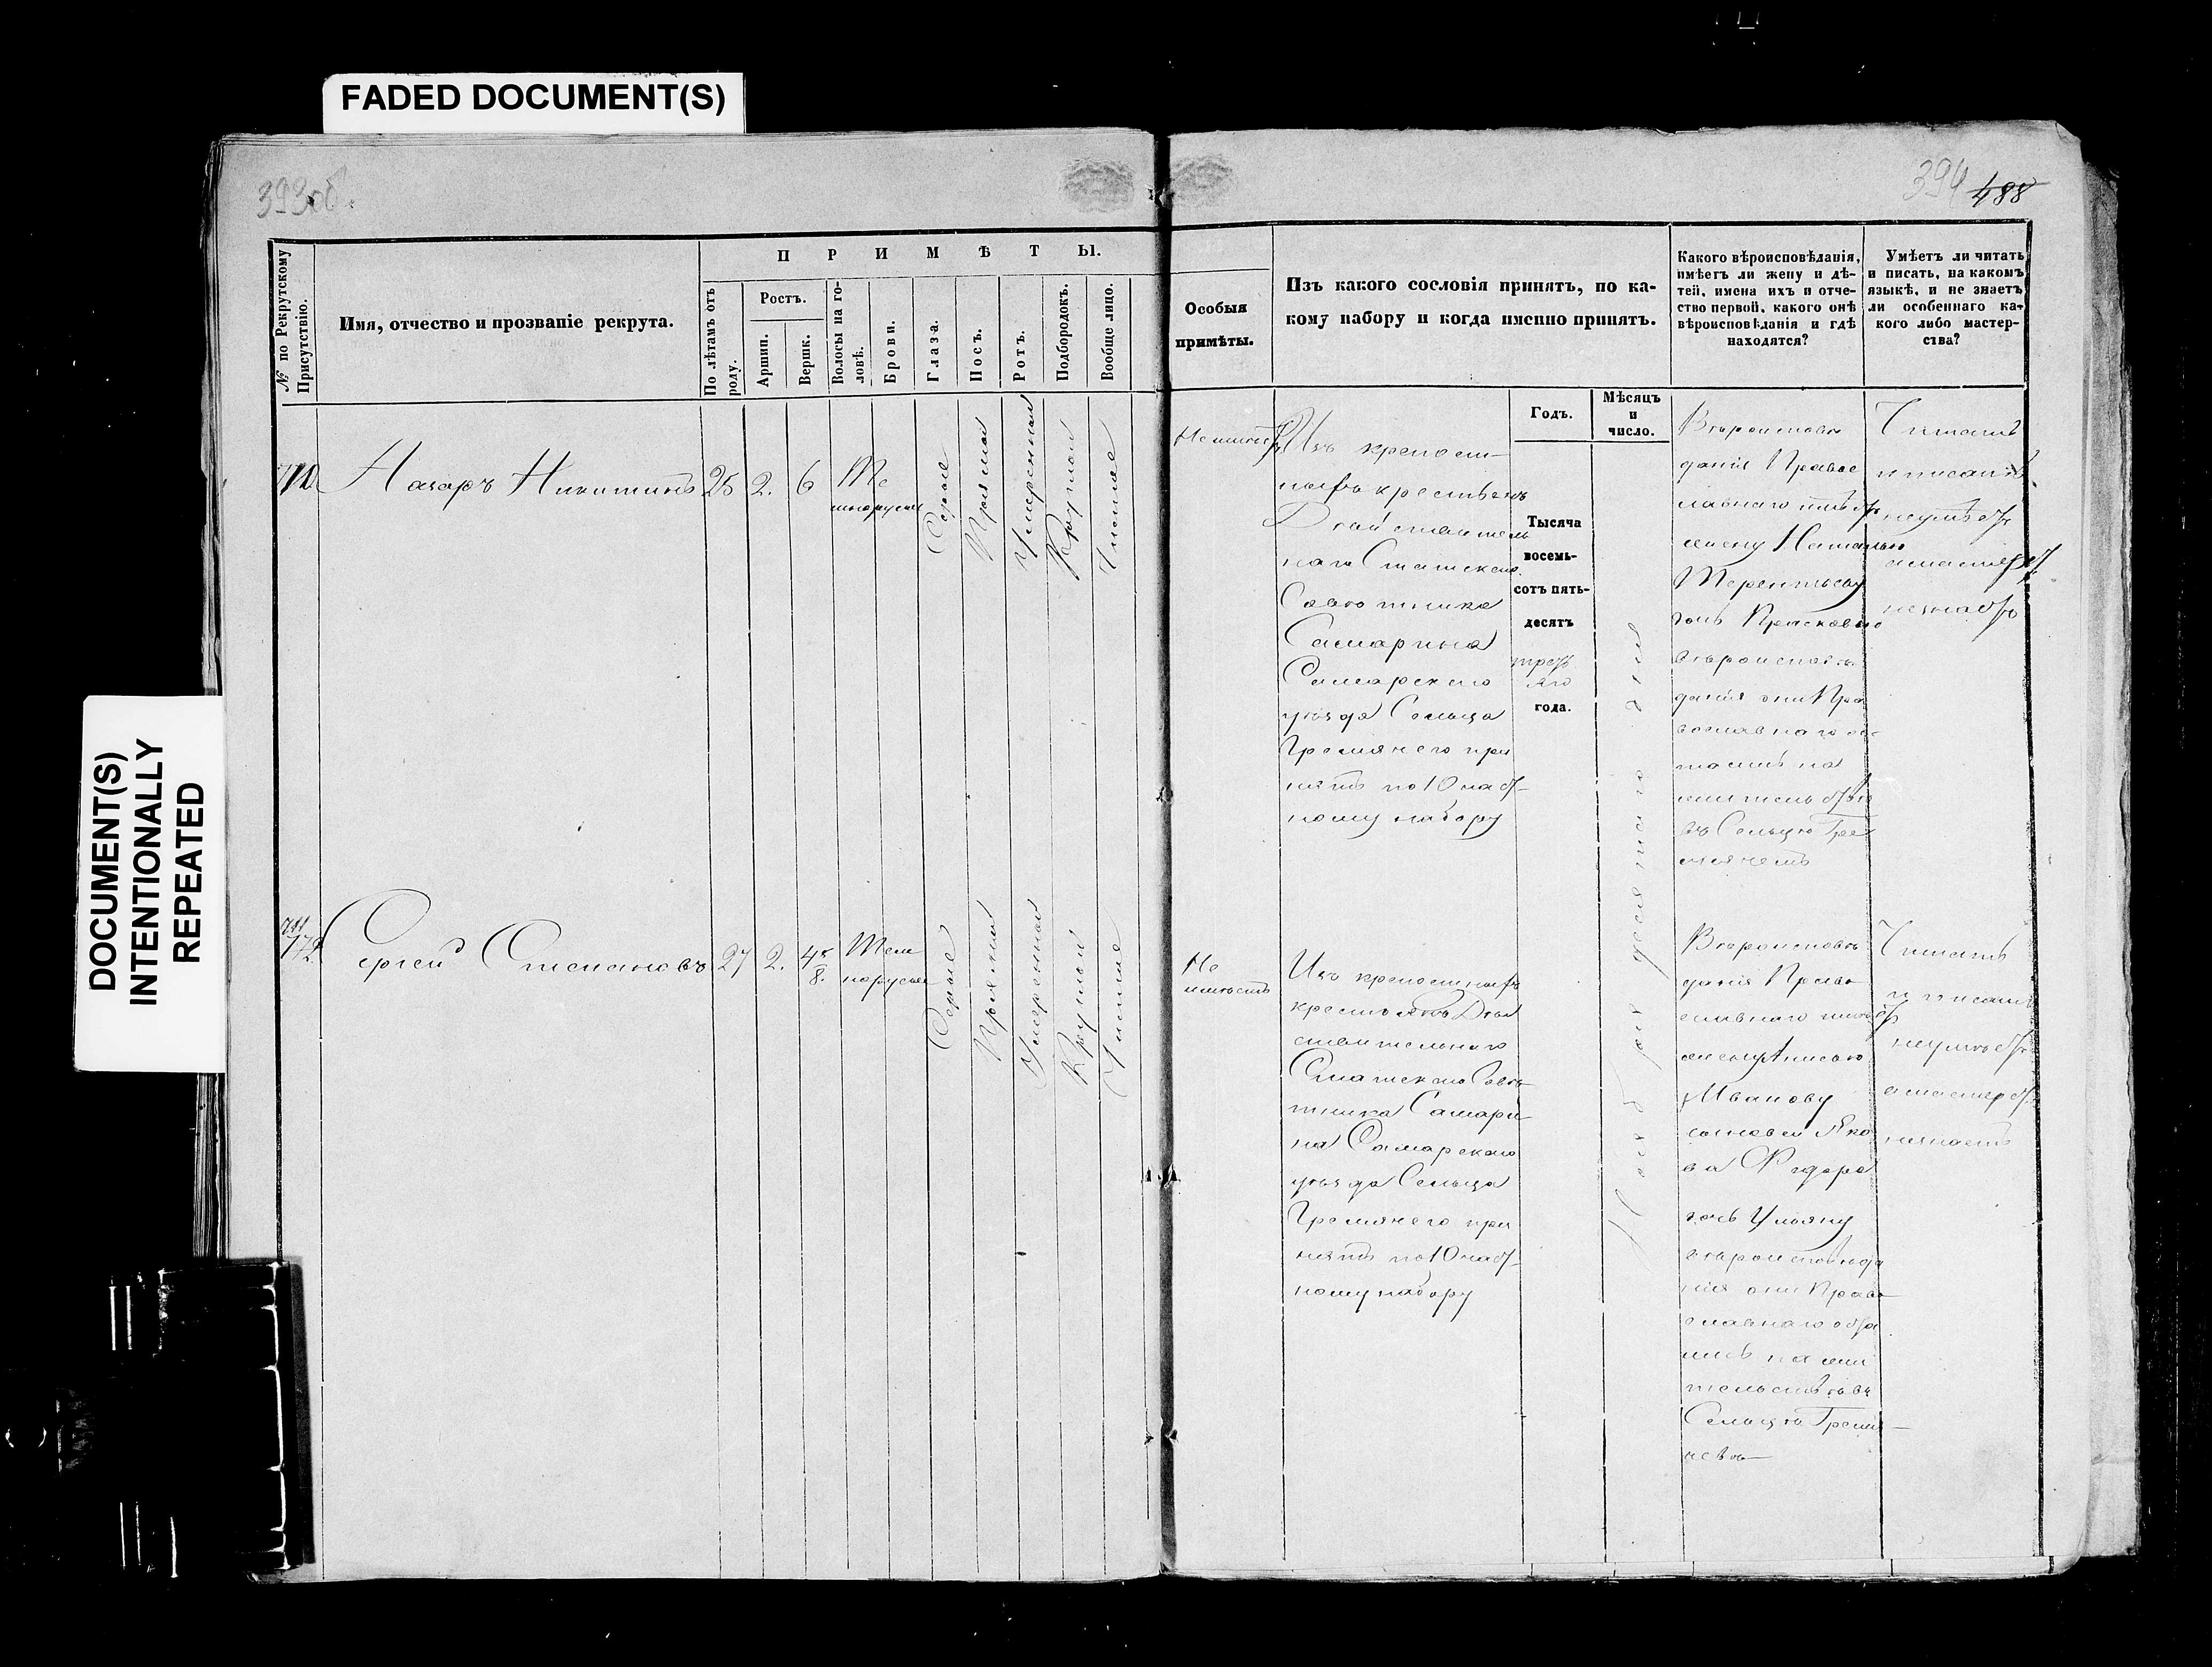 FADED DOCUMENT(S)
DOCUMENT(S)
INTENTIONALLY
REPEATED
393 об.
394 488
№ по Рекрутскому
Присутствію.
Имя, отчество и прозваніе рекрута.
ПРИМѢТЫ.
По лѣтамъ отъ
роду.
Ростъ.
Аршин.
Вершк.
Волосы на го-
ловѣ.
Брови.
Глаза.
Носъ.
Ротъ.
Подбородокъ.
Вообще лицо.
Особыя
примѣты.
Изъ какого сословія принятъ, по ка-
кому набору и когда именно принятъ.
Годъ.
Мѣсяцъ
и
число.
Какого вѣроисповѣданія,
имѣетъ ли жену и дѣ-
тей, имена ихъ и отче-
ство первой, какого онѣ
вѣроисповѣданія и гдѣ
находятся?
Умѣетъ ли читать
и писать, на какомъ
языкѣ, и не знаетъ
ли особеннаго ка-
кого либо мастер-
ства?
Назаръ Никитинъ
25
2.
6
Те
мнорусые
Серые
Прямой
Умеренный
Круглой
Чистое
Не имеетъ
Изъ крепост-
ныхъ крестьянъ
Действитель
наго Статскаго
Советника
Самарина
Самарскаго
уезда Сельца
Гремячего при
нятъ по 10 част-
ному набору
Тысяча
восемь-
сотъ пять-
десятъ
треть
яго
года.
Ноября десятаго дня
Вероиспове
данія Правос
лавнаго имеетъ
жену Наталью
Терентьеву
дочь Прасковью
вероиспове
данія они Пра
вославнаго ос
тались на
жительстве
въ Сельце Гре
мячемъ
Читать
и писать
неумеетъ
а мастерст
незнаетъ
172
Сергей Степановъ
27
2.
4 5/8.
Темн
норусые
Серые
Прямой
Умеренной
Круглой
Чистое
Не
имеетъ
Изъ крепостныхъ
крестьянъ Дей
ствительнаго
Статскаго Сове
тника Самари
на Самарскаго
уезда Сельца
Гремячего при
нятъ по 10 част-
ному набору
Вероиспове
данія Право
славнаго имеетъ
жену Анисью
Иванову
сыновей Яко
ва Федора
дочь Ульяну
вероисповеда
нія они Право
славнаго оста
лись на жи
тельстве въ
Сельце Гремя-
чево
Читать
и писать
неумеетъ
а мастерст.
незнаетъ